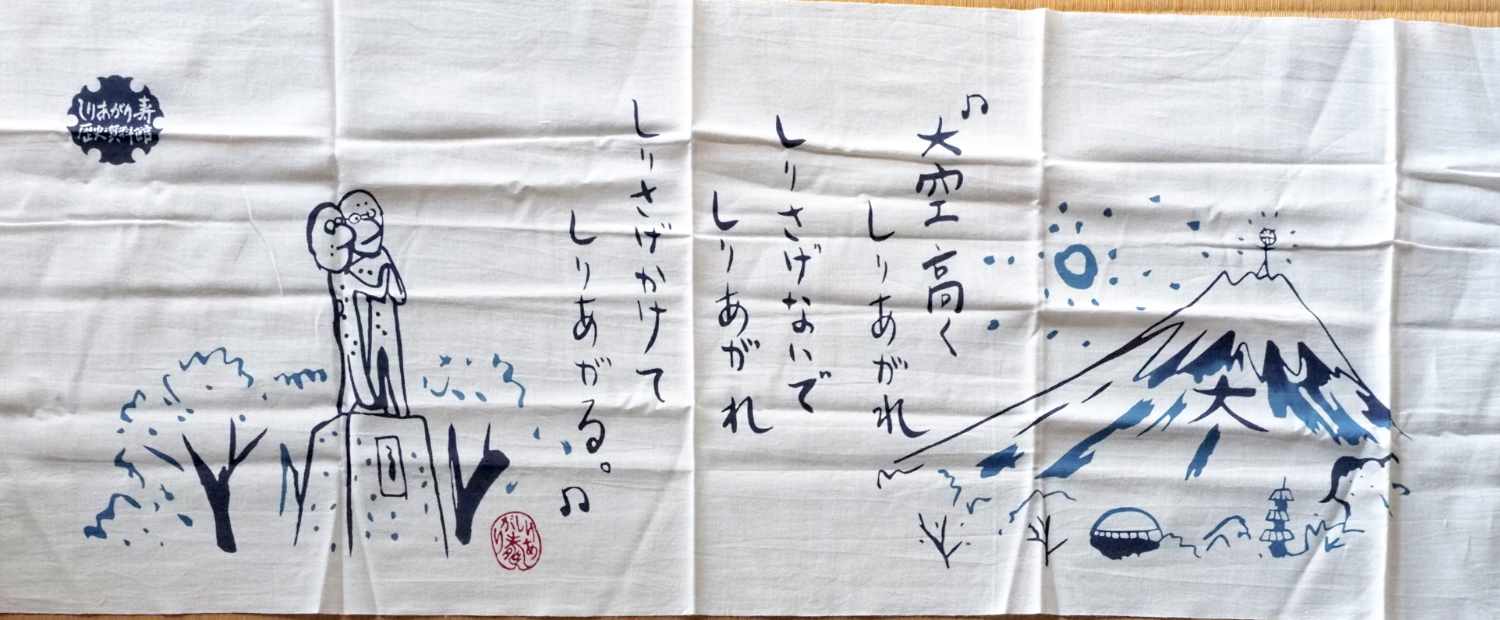 ♫大空高く
しりあがれ
しりさげないで
しりあがれ
しりさげかけて
しりあがる。♫
しりあがり寿
歴史資料館
大
しりあがり寿